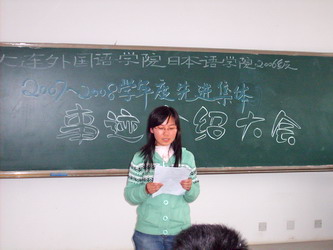 大连外国语学院日本语学院2006级
2007~2008学年度先进集体
事迹介绍大会